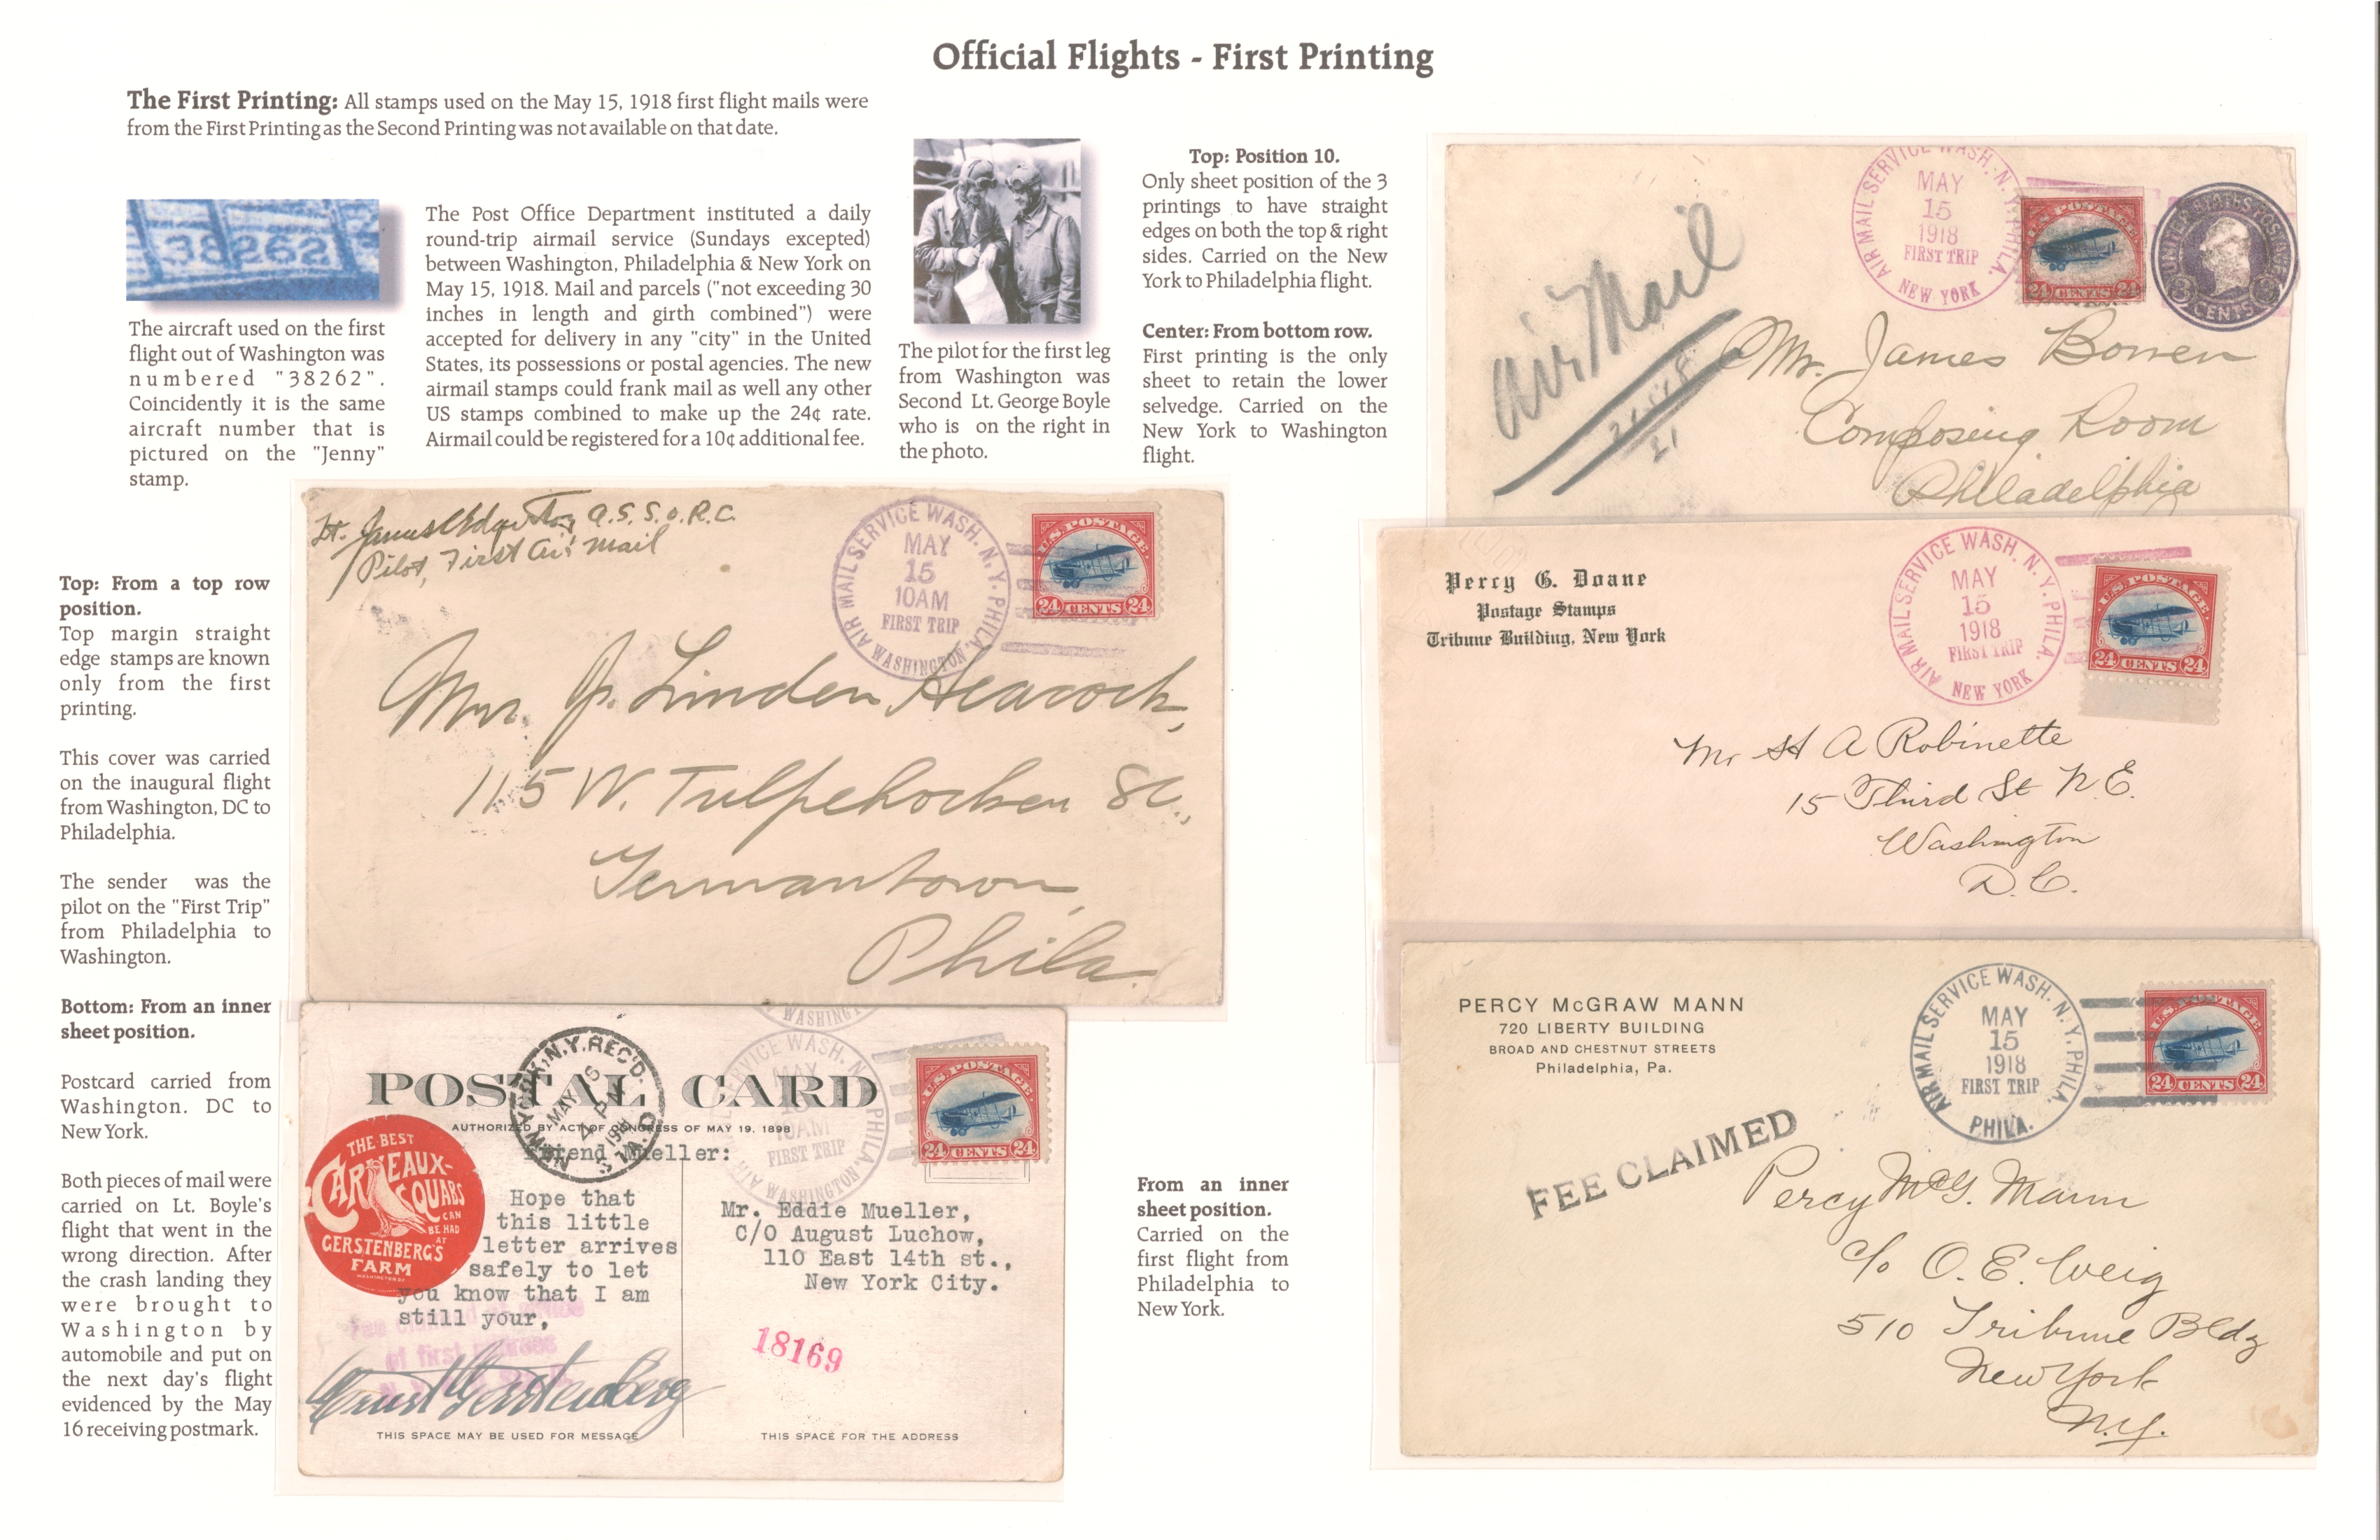 Official Flights - First Printing
The First Printing: All stamps used on the May 15, 1918 first flight mails were
from the First Printing as the Second Printing was not available on that date.
38262
The aircraft used on the first
flight out of Washington was
numbered "38262".
Coincidently it is the same
aircraft number that is
pictured on the "Jenny"
stamp.
The Post Office Department instituted a daily
round-trip airmail service (Sundays excepted)
between Washington, Philadelphia & New York on
May 15, 1918. Mail and parcels ("not exceeding 30
inches in length and girth combined") were
accepted for delivery in any "city" in the United
States, its possessions or postal agencies. The new
airmail stamps could frank mail as well any other
US stamps combined to make up the 24¢ rate.
Airmail could be registered for a 10¢ additional fee.
The pilot for the first leg
from Washington was
Second Lt. George Boyle
who is on the right in
the photo.
Top: Position 10.
Only sheet position of the 3
printings to have straight
edges on both the top & right
sides. Carried on the New
York to Philadelphia flight.
Center: From bottom row.
First printing is the only
sheet to retain the lower
selvedge. Carried on the
New York to Washington
flight.
AIR MAIL SERVICE WASH. N.Y. PHILA.
MAY
15
1918
FIRST TRIP
NEW YORK
U.S. POSTAGE
24 CENTS 24
UNITED STATES POSTAGE
3 CENTS 3
Air Mail
Mr. James Bowen
Composing Room
Philadelphia
Top: From a top row
position.
Top margin straight
edge stamps are known
only from the first
printing.
This cover was carried
on the inaugural flight
from Washington, DC to
Philadelphia.
The sender was the
pilot on the "First Trip"
from Philadelphia to
Washington.
Bottom: From an inner
sheet position.
Postcard carried from
Washington. DC to
New York.
Both pieces of mail were
carried on Lt. Boyle's
flight that went in the
wrong direction. After
the crash landing they
were brought to
Washington by
automobile and put on
the next day's flight
evidenced by the May
16 receiving postmark.
Lt. James Edgerton, A.S.S.O.R.C.
Pilot, First Air Mail
AIR MAIL SERVICE WASH. N.Y. PHILA.
MAY
15
10AM
FIRST TRIP
WASHINGTON.
U.S. POSTAGE
24 CENTS 24
Mrs. J. Linden Heacock,
115 W. Tulpehocken St.,
Germantown,
Phila.
Percy G. Doane
Postage Stamps
Tribune Building, New York
AIR MAIL SERVICE WASH. N.Y. PHILA.
MAY
15
1918
FIRST TRIP
NEW YORK
U.S. POSTAGE
24 CENTS 24
Mr H A Robinette
15 Third St N.E.
Washington
D.C.
POSTAL CARD
AUTHORIZED BY ACT OF CONGRESS OF MAY 19, 1898
NEW YORK, N.Y. REC'D.
MAY 16
4 PM
1918
WASHINGTON
SERVICE WASH. N
MAY
15
10AM
FIRST TRIP
PHILA.
WASHINGTON
U.S. POSTAGE
24 CENTS 24
THE BEST
CARNEAUX-
SQUABS
CAN
BE HAD
AT
GERSTENBERG'S
FARM
WASHINGTON DC
Friend Mueller:
Hope that
this little
letter arrives
safely to let
you know that I am
still your,
of first
Ernst Gerstenberg
Mr. Eddie Mueller,
C/O August Luchow,
110 East 14th st.,
New York City.
18169
THIS SPACE MAY BE USED FOR MESSAGE
THIS SPACE FOR THE ADDRESS
From an inner
sheet position.
Carried on the
first flight from
Philadelphia to
New York.
PERCY McGRAW MANN
720 LIBERTY BUILDING
BROAD AND CHESTNUT STREETS
Philadelphia, Pa.
AIR MAIL SERVICE WASH. N.Y. PHILA.
MAY
15
1918
FIRST TRIP
PHILA.
U.S. POSTAGE
24 CENTS 24
FEE CLAIMED
Percy McG. Mann
c/o O. E. Weig
510 Tribune Bldg
New York
N.Y.